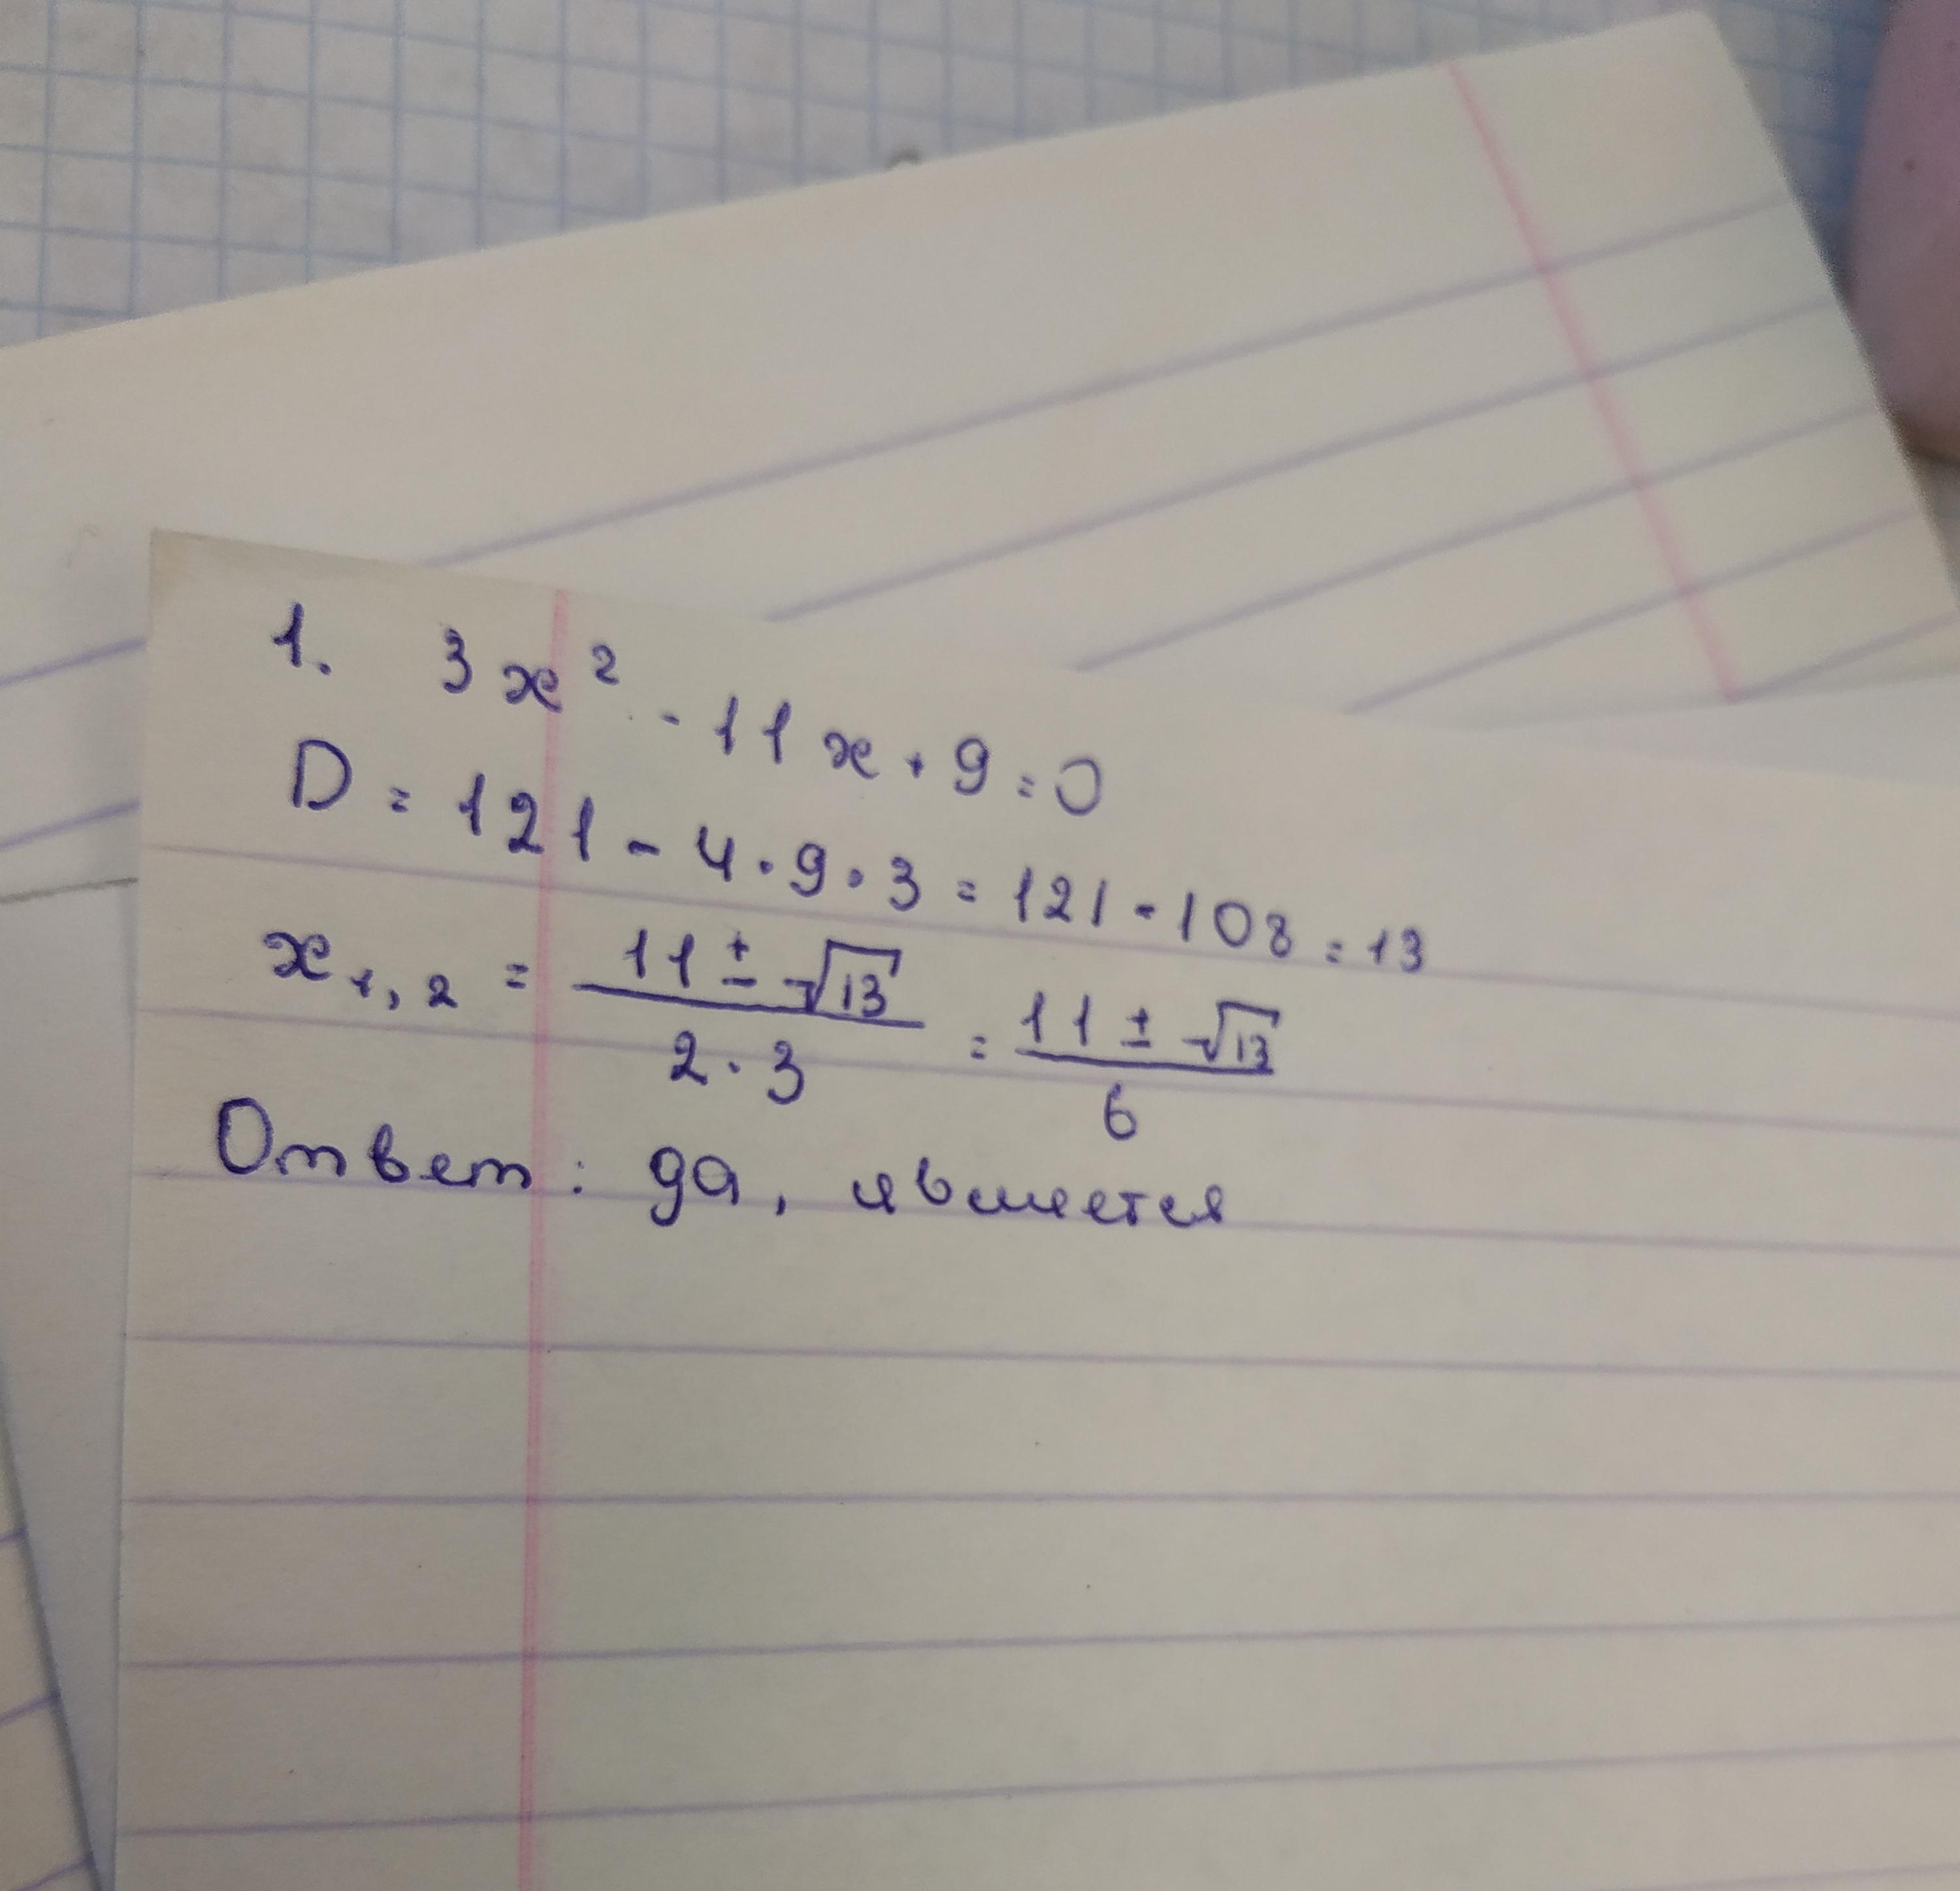 1. 3x² - 11x + 9 = 0
D = 121 - 4 · 9 · 3 = 121 - 108 = 13
x₁,₂ = (11 ± √13)/(2 · 3) = (11 ± √13)/6
Ответ: да, является